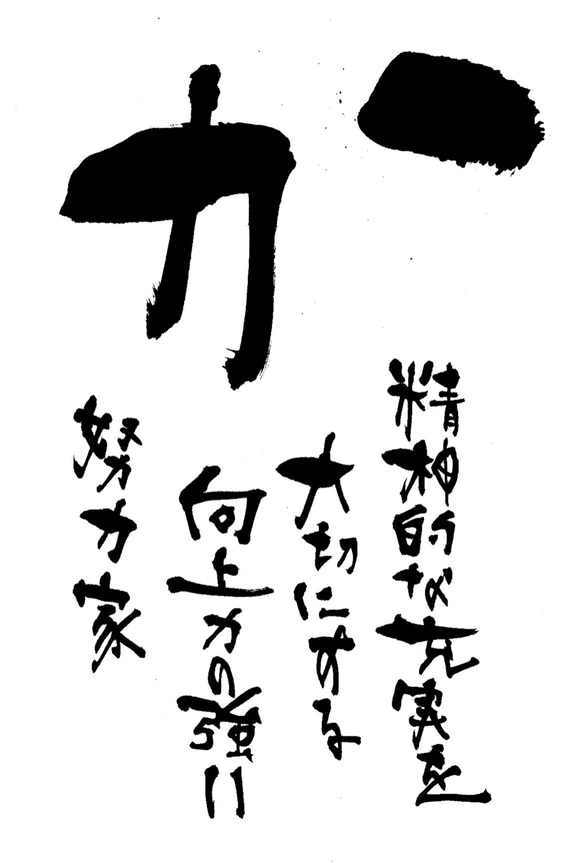 一力
精神的な充実を
大切にする
向上力の強い
努力家